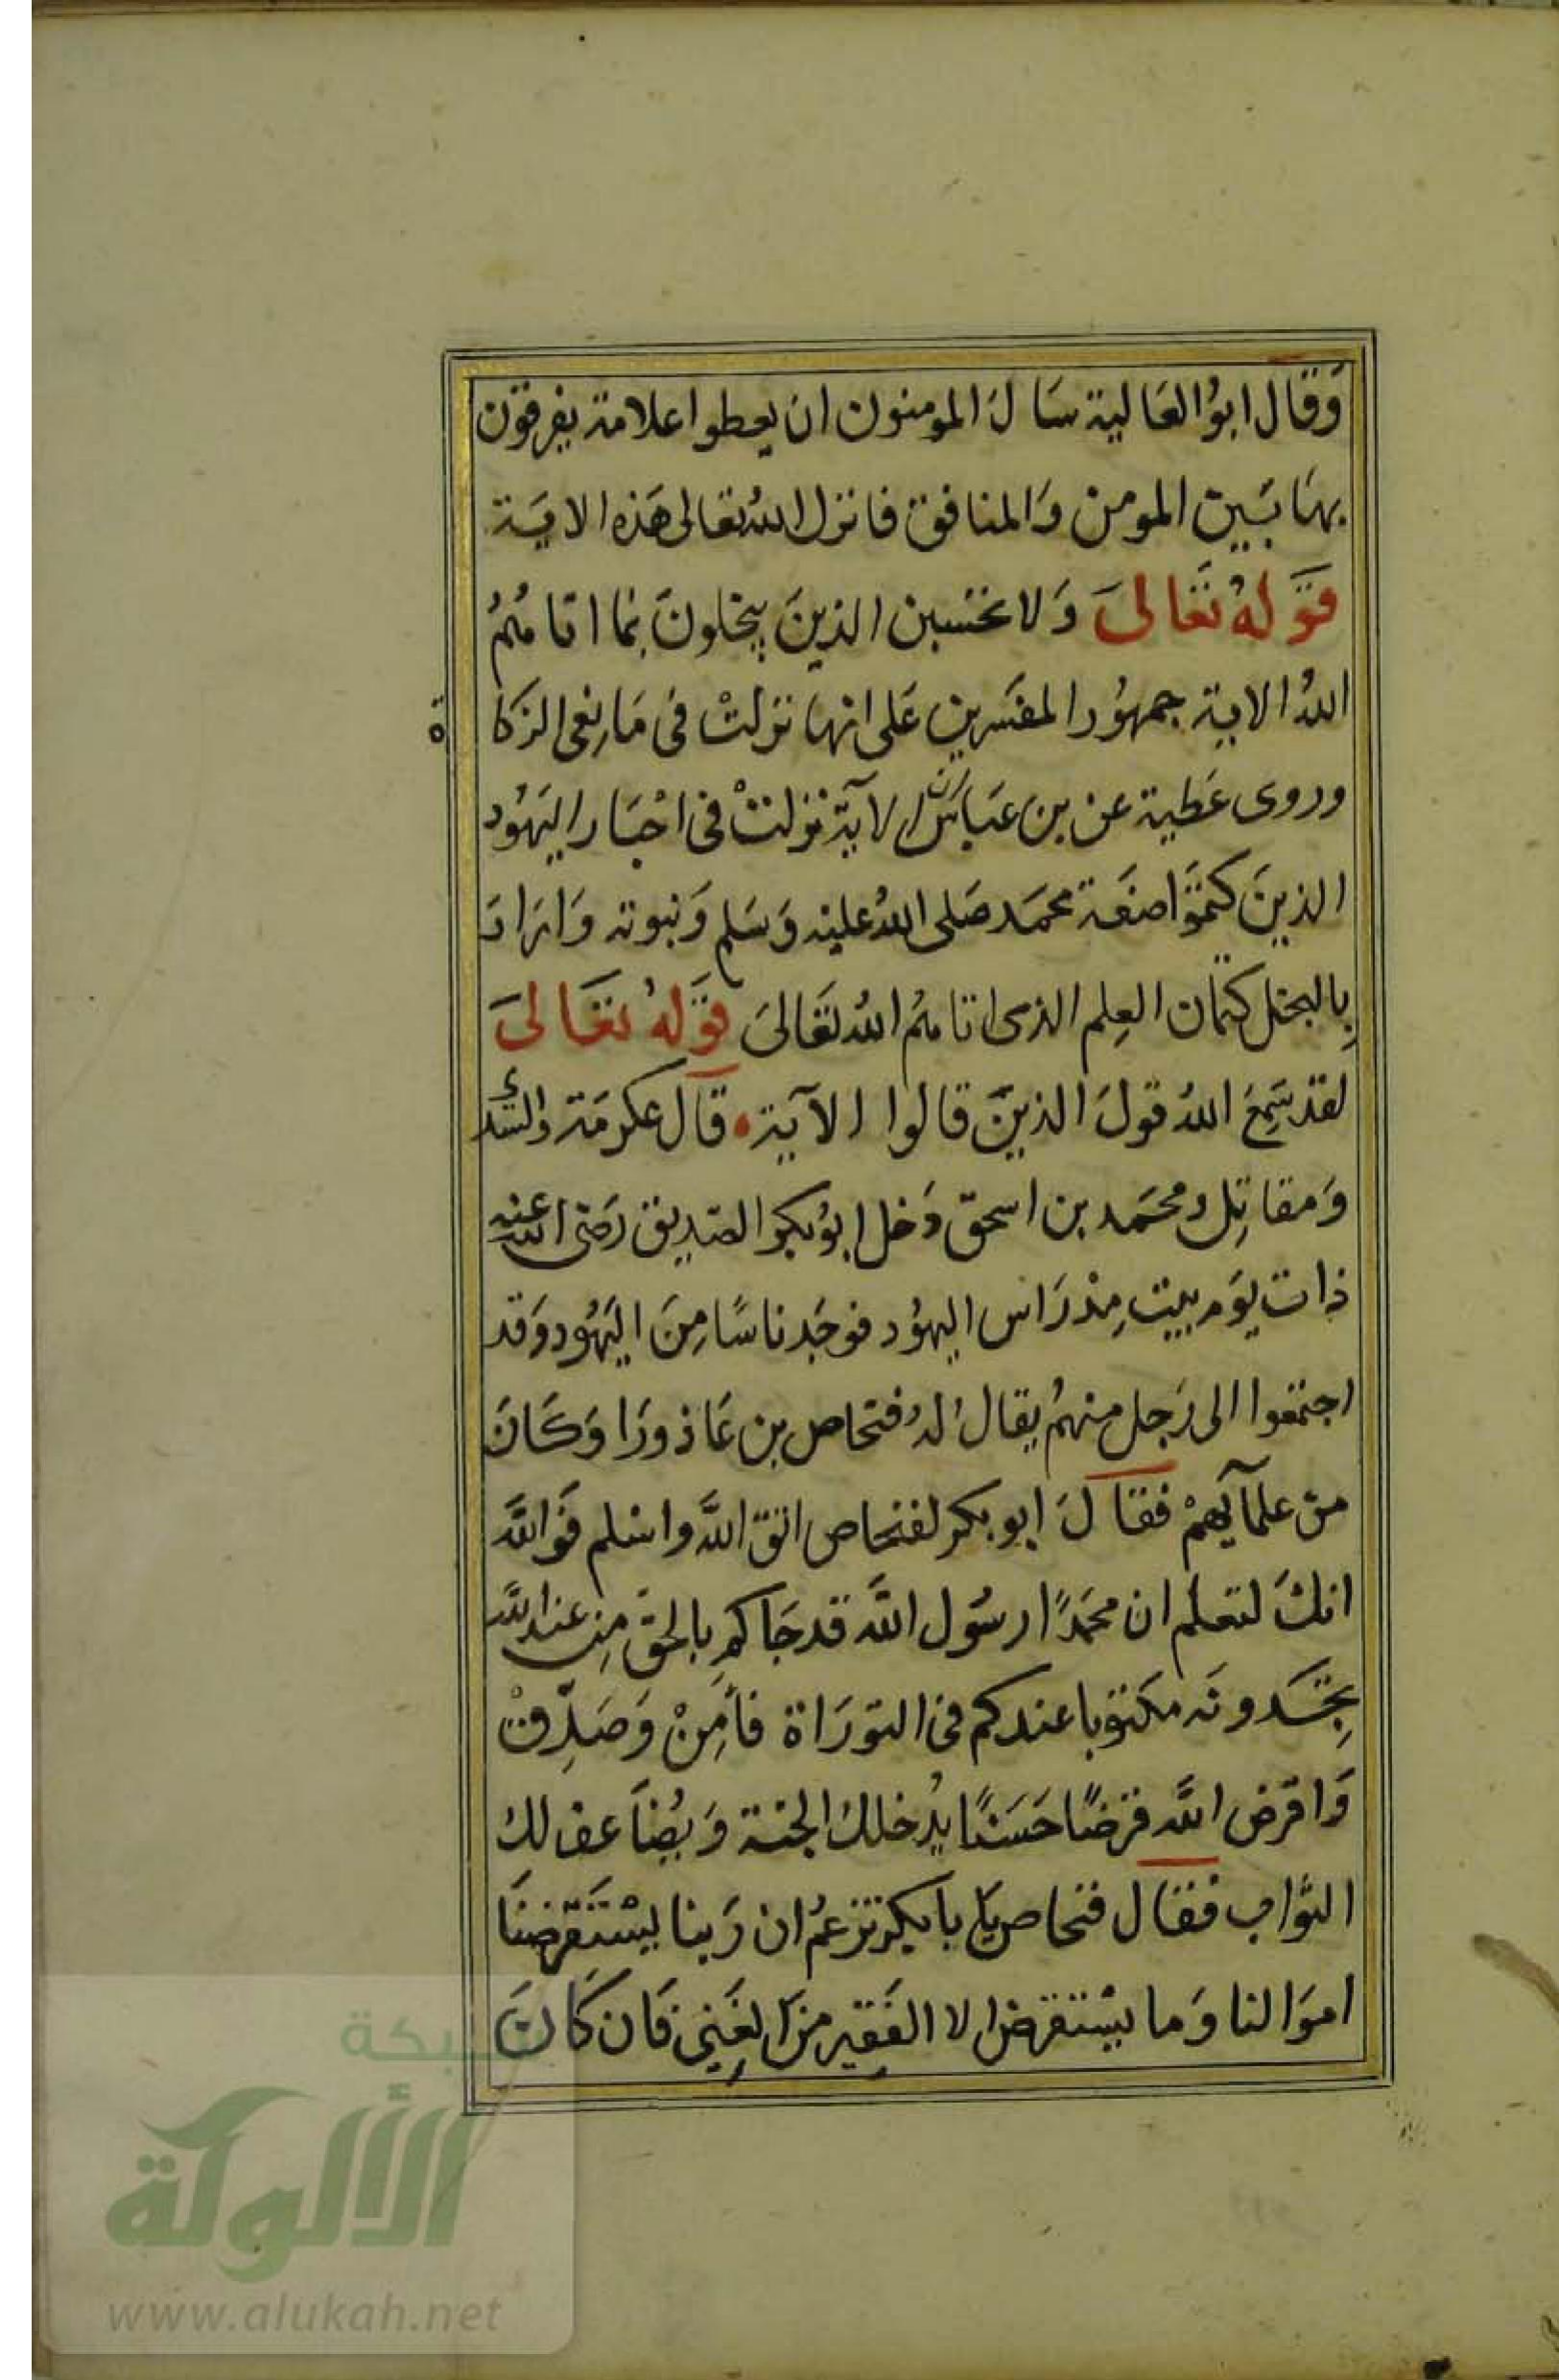 وَقَال ابوُ العَالية سَالَ المومنون ان يعطوا علامة يفرقون
بهَا بَيين المومن وَالمنافق فانزل اللهُ تعالى هَذه الايَة
قَولهُ تَعَالىَ وَلا تحسبن الذينَ يبخلونَ بما اتاهُمُ
اللهُ الاية جمهُور المفسَرين عَلى انها نزلتْ فى مَانعى الزكاة
وروى عَطية عن بن عبَاسَ ان الآية نزلتْ فى احْبَار اليَهوُد
الذينَ كتمَوا صفَة محمَد صَلى اللهُ عليه وَسَلم وَنبوته وَارَادَ
بِالبخل كتمان العِلم الذى اتاهُم اللهُ تَعَالىَ قَولهُ تعَالىَ
لقد سَمِعَ اللهُ قولَ الذينَ قالوا الآية • قَال عكرمَة والسدى
وَمقاتِل ومحمَد بن اسحق دَخل ابوُ بكر الصَديق رَضى الله عنه
ذات يوَم بيت مِدْرَاس اليهوُد فوجَد ناسًا مِنَ اليَهُود وَقد
اجتمعوا الى رَجل منهمُ يقال لهُ فنحاص بن عَازورَا وَكَانَ
من علمآيهمْ فقالَ ابو بكر لفنحاص اتق اللهَ واسلم فَوالله
انكَ لتعلم ان محمَدًا رسُول الله قد جَاكم بالحقَ مِن عند الله
تجَدونه مكتوَبا عندكم فى التورَاة فأمِنْ وَصَدِقْ
وَاقرض الله قرضًا حَسَنًا يُدخلك الجنة وَيُضَاعف لك
الثوَاب فقال فنحاص يَا با بكر تزعمُ ان رَبنا يسْتَقرضنَا
اموَالنا وَما يسْتقرض الا الفَقِير منَ الغَنِي فَان كَانَ
شبكة
الألوكة
www.alukah.net